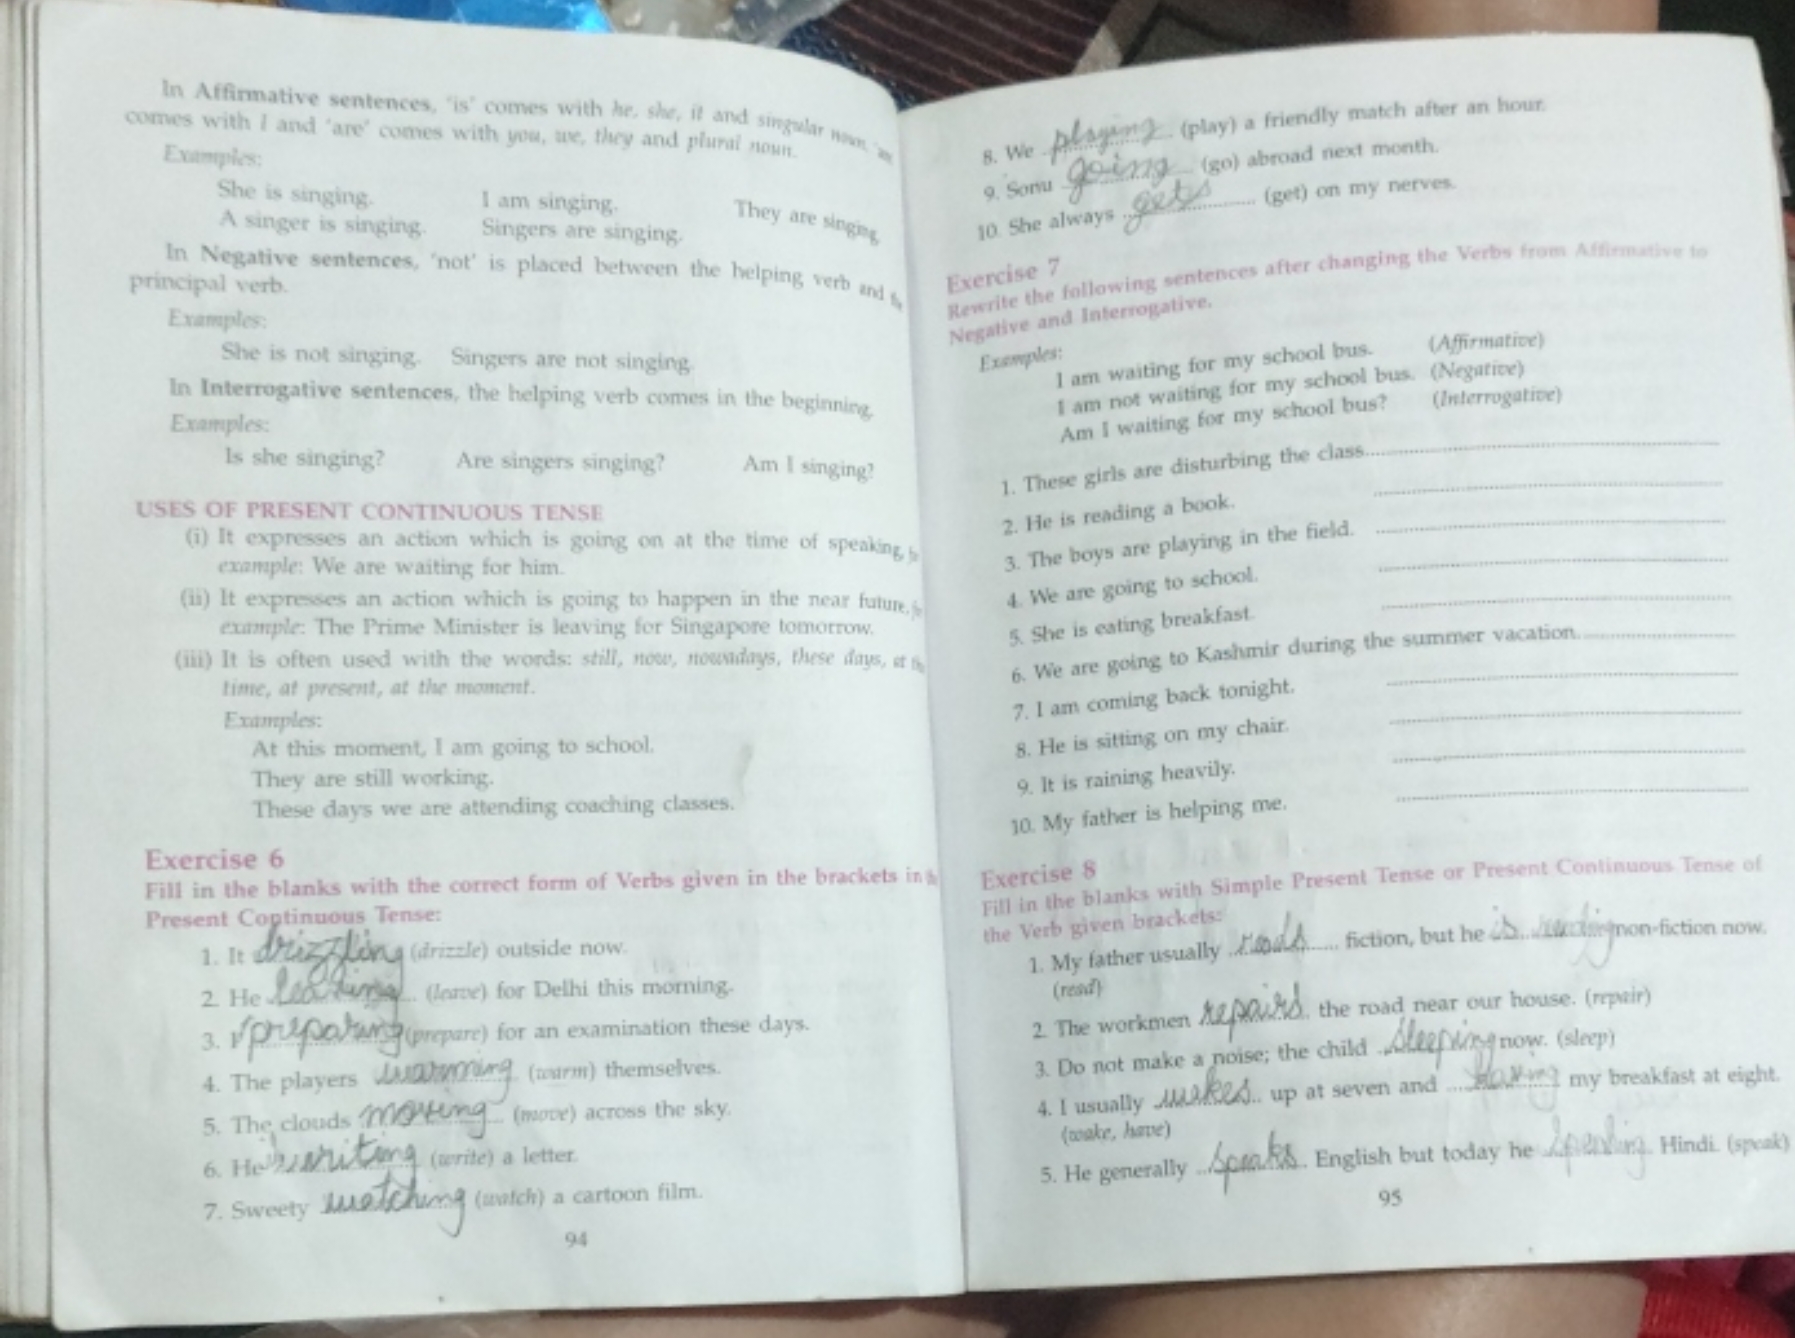 In Affirmative sentences, 'is' comes with he, she, it and singular noun, 'am'
comes with I and 'are' comes with you, we, they and plural noun.
Examples:
She is singing. I am singing. They are singing.
A singer is singing. Singers are singing.
In Negative sentences, 'not' is placed between the helping verb and the
principal verb.
Examples:
She is not singing. Singers are not singing.
In Interrogative sentences, the helping verb comes in the beginning.
Examples:
Is she singing? Are singers singing? Am I singing?
USES OF PRESENT CONTINUOUS TENSE
(i) It expresses an action which is going on at the time of speaking,
example: We are waiting for him.
(ii) It expresses an action which is going to happen in the near future,
example: The Prime Minister is leaving for Singapore tomorrow.
(iii) It is often used with the words: still, now, nowadays, these days, at
time, at present, at the moment.
Examples:
At this moment, I am going to school.
They are still working.
These days we are attending coaching classes.
Exercise 6
Fill in the blanks with the correct form of Verbs given in the brackets in
Present Continuous Tense:
1. It drizzling (drizzle) outside now.
2. He leaving (leave) for Delhi this morning.
3. I preparing (prepare) for an examination these days.
4. The players warming (warm) themselves.
5. The clouds moving (move) across the sky.
6. He writing (write) a letter.
7. Sweety watching (watch) a cartoon film.
94
8. We playing (play) a friendly match after an hour.
9. Sonu going (go) abroad next month.
10. She always gets (get) on my nerves.
Exercise 7
Rewrite the following sentences after changing the Verbs from Affirmative to
Negative and Interrogative.
Examples:
I am waiting for my school bus. (Affirmative)
I am not waiting for my school bus. (Negative)
Am I waiting for my school bus? (Interrogative)
1. These girls are disturbing the class.
2. He is reading a book.
3. The boys are playing in the field.
4. We are going to school.
5. She is eating breakfast.
6. We are going to Kashmir during the summer vacation.
7. I am coming back tonight.
8. He is sitting on my chair.
9. It is raining heavily.
10. My father is helping me.
Exercise 8
Fill in the blanks with Simple Present Tense or Present Continuous Tense of
the Verb given brackets:
1. My father usually reads fiction, but he is reading non-fiction now.
(read)
2. The workmen repairs the road near our house. (repair)
3. Do not make a noise; the child sleeping now. (sleep)
4. I usually wakes up at seven and having my breakfast at eight.
(wake, have)
5. He generally speaks English but today he speaking Hindi. (speak)
95